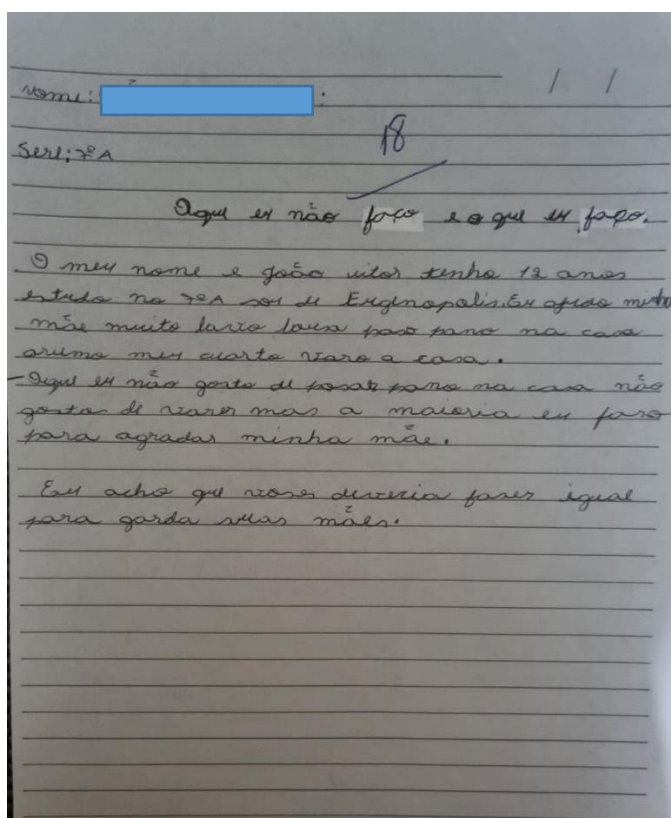 Nome: :
/ /
Seri; 7º A
18
Oque eu não faço e o que eu faço.
O meu nome e João vitor tenho 12 anos
estudo no 7ºA sou de Euginopolis. Eu ajudo minha
mãe muito lavo lousa paso pano na casa
arumo meu cuarto varo a casa.
-Oque eu não gosto de pasar pano na casa não
gosto de varer mas a maioria eu faso
para agradar minha mãe.
Eu acho que voses deveria faser igual
para garda suas mães.